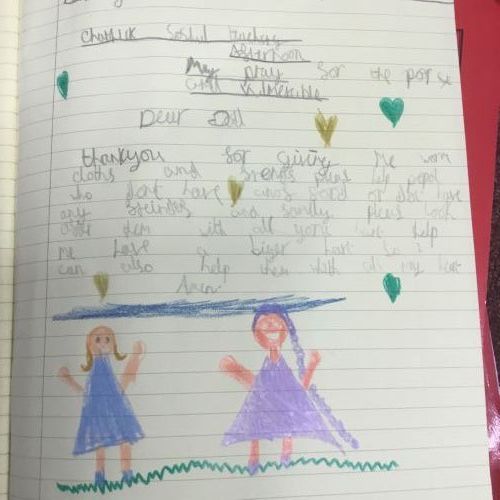 Catholik Soshul teaching
Afternoon
My pray for the poor
and vulnerible
Dear God
thankyou for giving me worm
cloths and plens help pepol
who dont have enof or dont have
any and plens look
after them with all your help
me have a biger hart so I
can also help them with all my hart
Amen